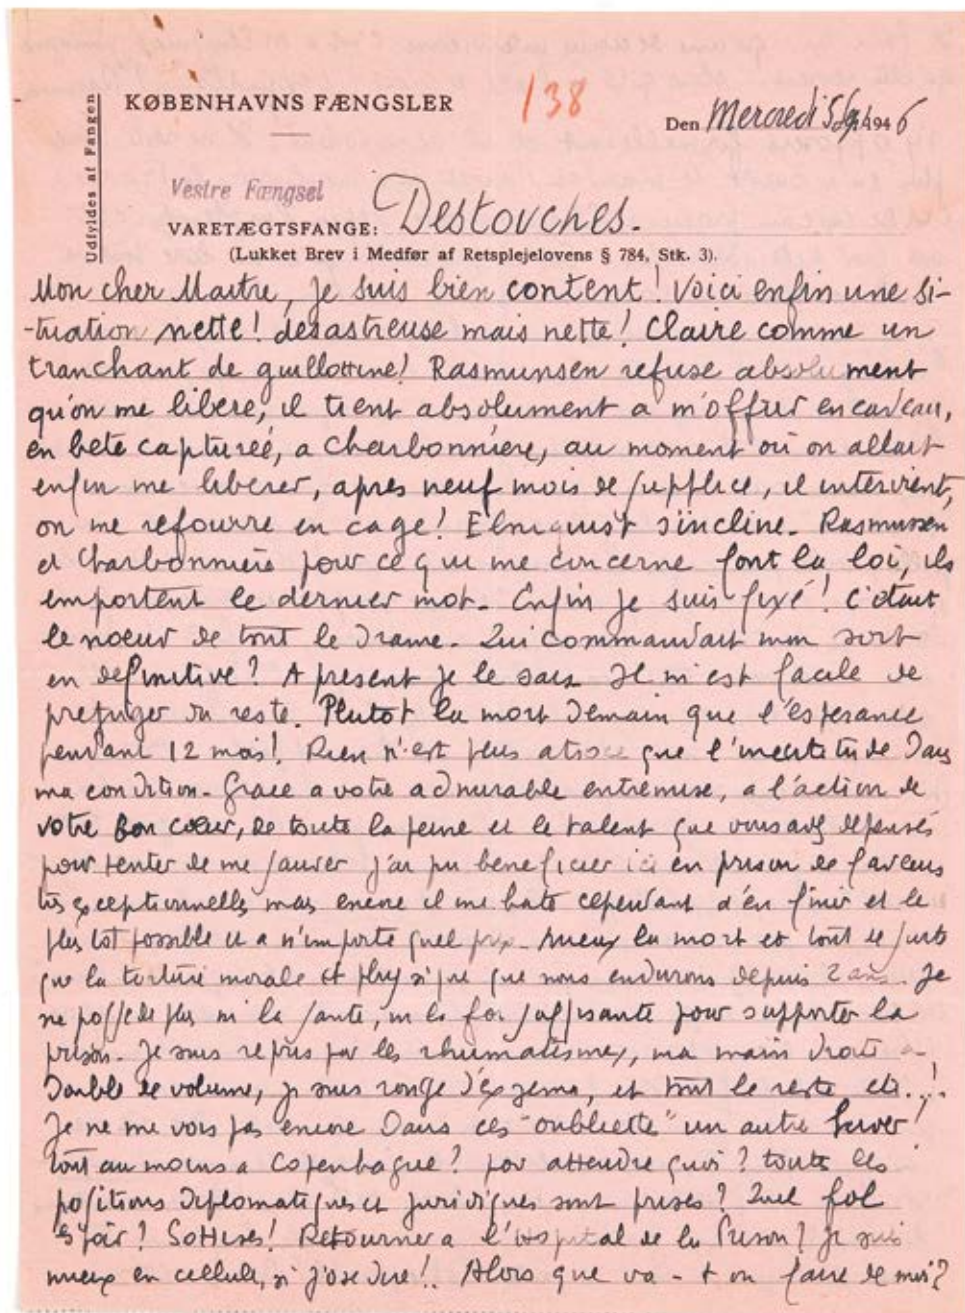 KØBENHAVNS FÆNGSLER
138
Udfyldes af Fangen
Den Mercredi 1946
Vestre Fængsel
VARETÆGTSFANGE: Destouches.
(Lukket Brev i Medfør af Retsplejelovens § 784, Stk. 3).
Mon cher Maitre, Je suis bien content! Voici enfin une si-
-tuation nette! désastreuse mais nette! Claire comme un
tranchant de guillottine! Rasmunsen refuse absolument
qu'on me libere, il tient absolument a m'offrir en cadeau,
en bete capturéé, a Charbonniere, au moment où on allait
enfin me liberer, apres neuf mois de supplice, il intervient,
on me refourre en cage! Elmquist s'incline. Rasmussen
et Charbonniere pour ce qui me concerne font la loi, ils
emportent le dernier mot. Enfin je suis fixé! C'etait
le noeud de tout le drame. Qui commandait mon sort
en definitive? A present je le sais Il m'est facile de
prejuger du reste. Plutot la mort demain que l'esperance
pendant 12 mois! Rien n'est plus atroce que l'incertitude dans
ma condition. Grace a votre admirable entremise, a l'action de
votre bon coeur, de toute la peine et le talent que vous avez depensés
pour tenter de me sauver j'ai pu beneficier ici en prison de faveurs
tres exceptionnelles mais encore il me hate cependant d'en finir et le
plus tot possible et a n'importe quel prix. Mieux la mort et tout de suite
que la torture morale et physique que nous endurons depuis 2 ans. Je
ne possede plus ni la sante, ni la foi suffisante pour supporter la
prison. Je suis repris par les rhumatismes, ma main droite a
doublé de volume, je suis rongé d'exzema, et tout le reste etc...!
Je ne me vois pas encore dans ces "oubliette" un autre hiver!
tout au moins a Copenhague? pour attendre quoi? toutes les
positions diplomatiques et juridiques sont prises? Quel fol
espoir? Sottises! Retourner a l'Hospital de la Prison? Je suis
mieux en cellule, si j'ose dire!. Alors que va-t on faire de moi?